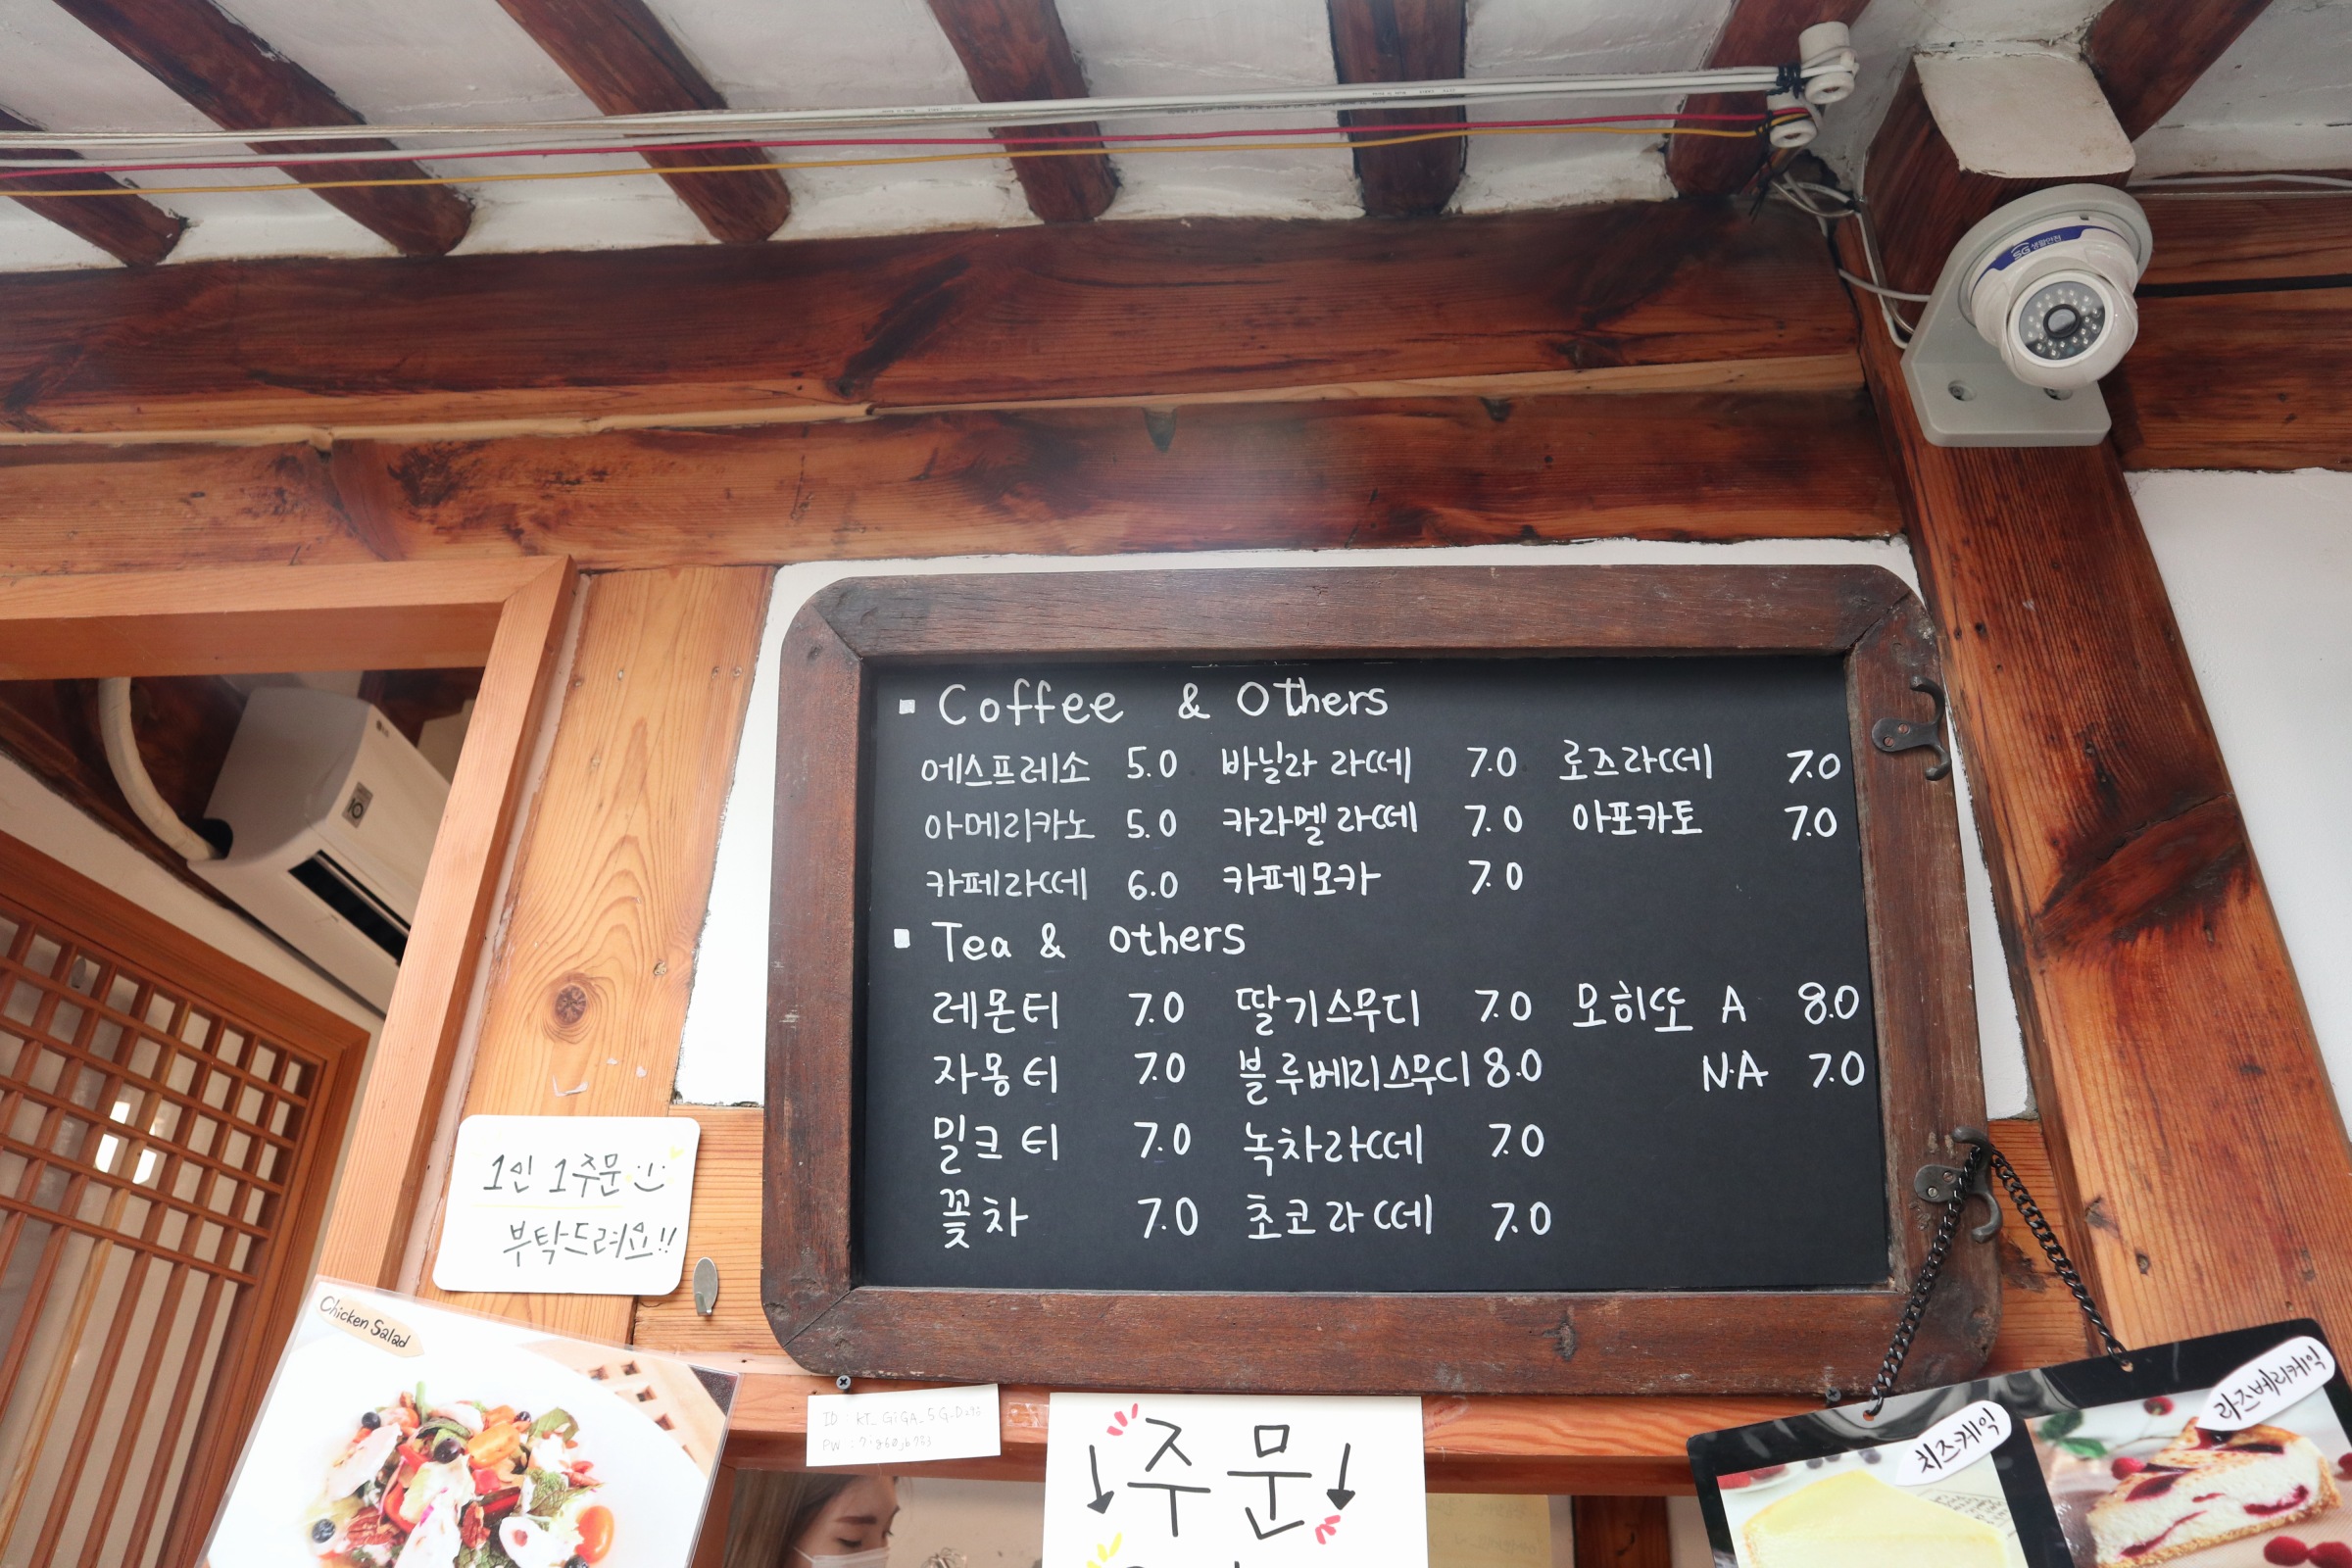 SG 생활안전
▪ Coffee & Others
에스프레소 5.0 바닐라 라떼 7.0 로즈라떼 7.0
아메리카노 5.0 카라멜 라떼 7.0 아포카토 7.0
카페라떼 6.0 카페모카 7.0
▪ Tea & others
레몬티 7.0 딸기스무디 7.0 모히또 A 8.0
자몽티 7.0 블루베리스무디 8.0 N.A 7.0
밀크티 7.0 녹차라떼 7.0
꽃차 7.0 초코라떼 7.0
1인 1주문
부탁드려요!!
Chicken Salad
ID : KT_GiGA_5G_
PW :
↓주문↓
치즈케익
라즈베리케익